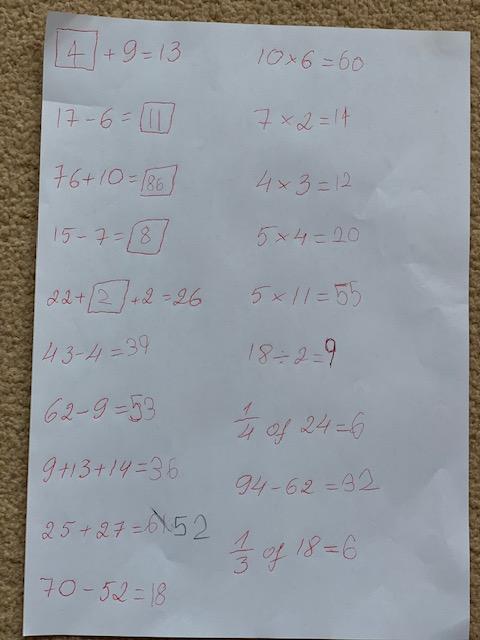 4 + 9 = 13
17 - 6 = 11
76 + 10 = 86
15 - 7 = 8
22 + 2 + 2 = 26
43 - 4 = 39
62 - 9 = 53
9 + 13 + 14 = 36
25 + 27 = 52
70 - 52 = 18
10 × 6 = 60
7 × 2 = 14
4 × 3 = 12
5 × 4 = 20
5 × 11 = 55
18 ÷ 2 = 9
1/4 of 24 = 6
94 - 62 = 32
1/3 of 18 = 6